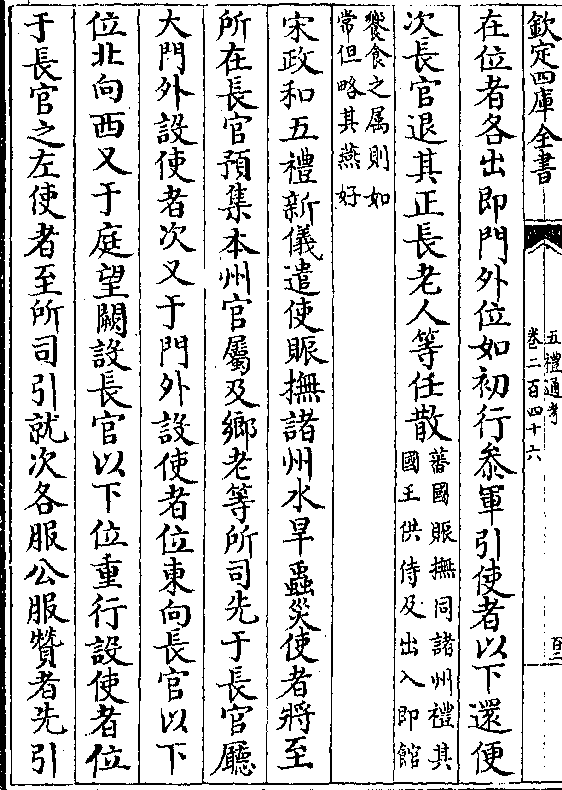 欽定四庫全書
五禮通考
卷二百四十六
百二
在位者各出即門外位如初行叅軍引使者以下還便
次長官退其正長老人等任散
蕃國賑撫同諸州禮其
國王供侍及出入即館
饗食之属則如
常但略其燕好
宋政和五禮新儀遣使賑撫諸州水旱蟲災使者將至
所在長官預集本州官屬及鄉老等所司先于長官廳
大門外設使者次又于門外設使者位東向長官以下
位北向西又于庭望闕設長官以下位重行設使者位
于長官之左使者至所司引就次各服公服贊者先引